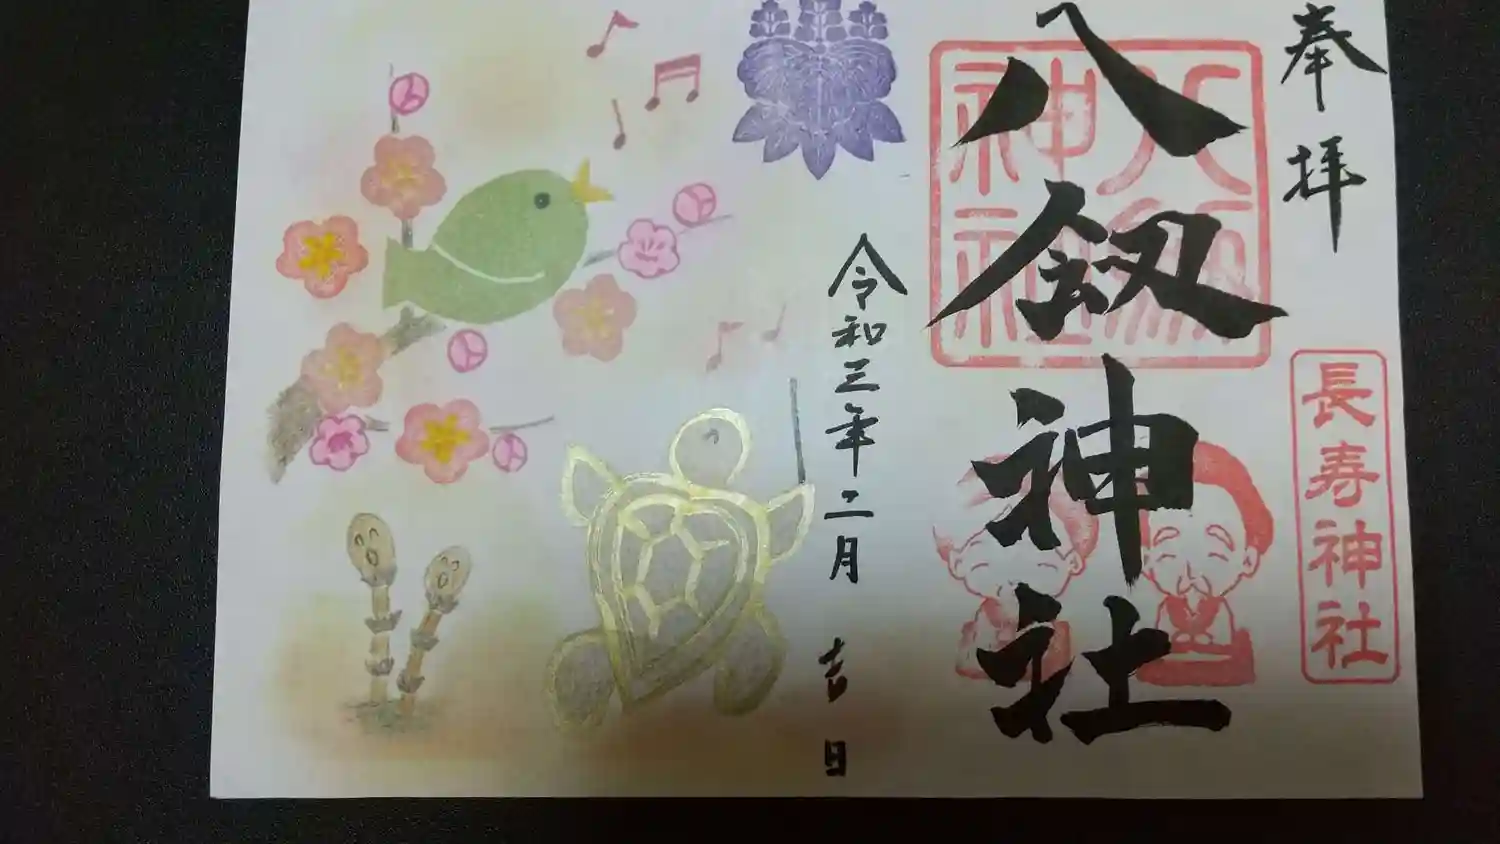 奉拝
八釼神社
八劔神社
長寿神社
令和三年二月 吉日